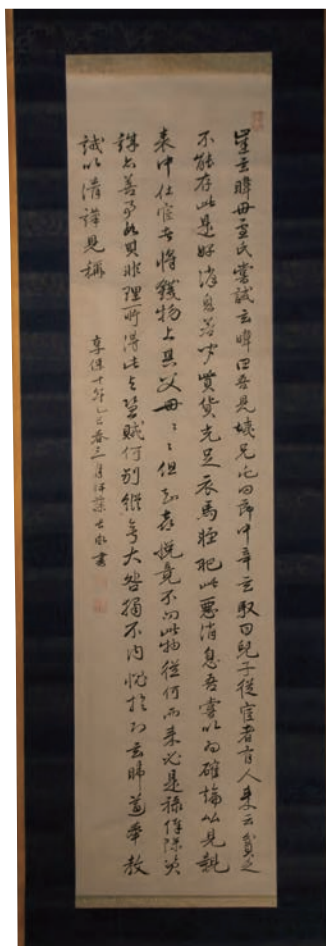 崔玄暐母盧氏嘗誡玄暐曰吾見姨兄屯田郎中辛玄馭曰兒子從宦者有人來云貧乏
不能存此是好消息若聞貲貨充足衣馬輕肥此惡消息吾嘗以為確論比見親
表中仕宦者將錢物上其父母〻〻但知喜悅竟不問此物從何而來必是祿俸餘資
誠亦善事如其非理所得此与盜賊何別縱無大咎獨不内愧於心玄暐遵奉教
誡以清謹見稱
享保十年乙巳春三月伊藤長胤書